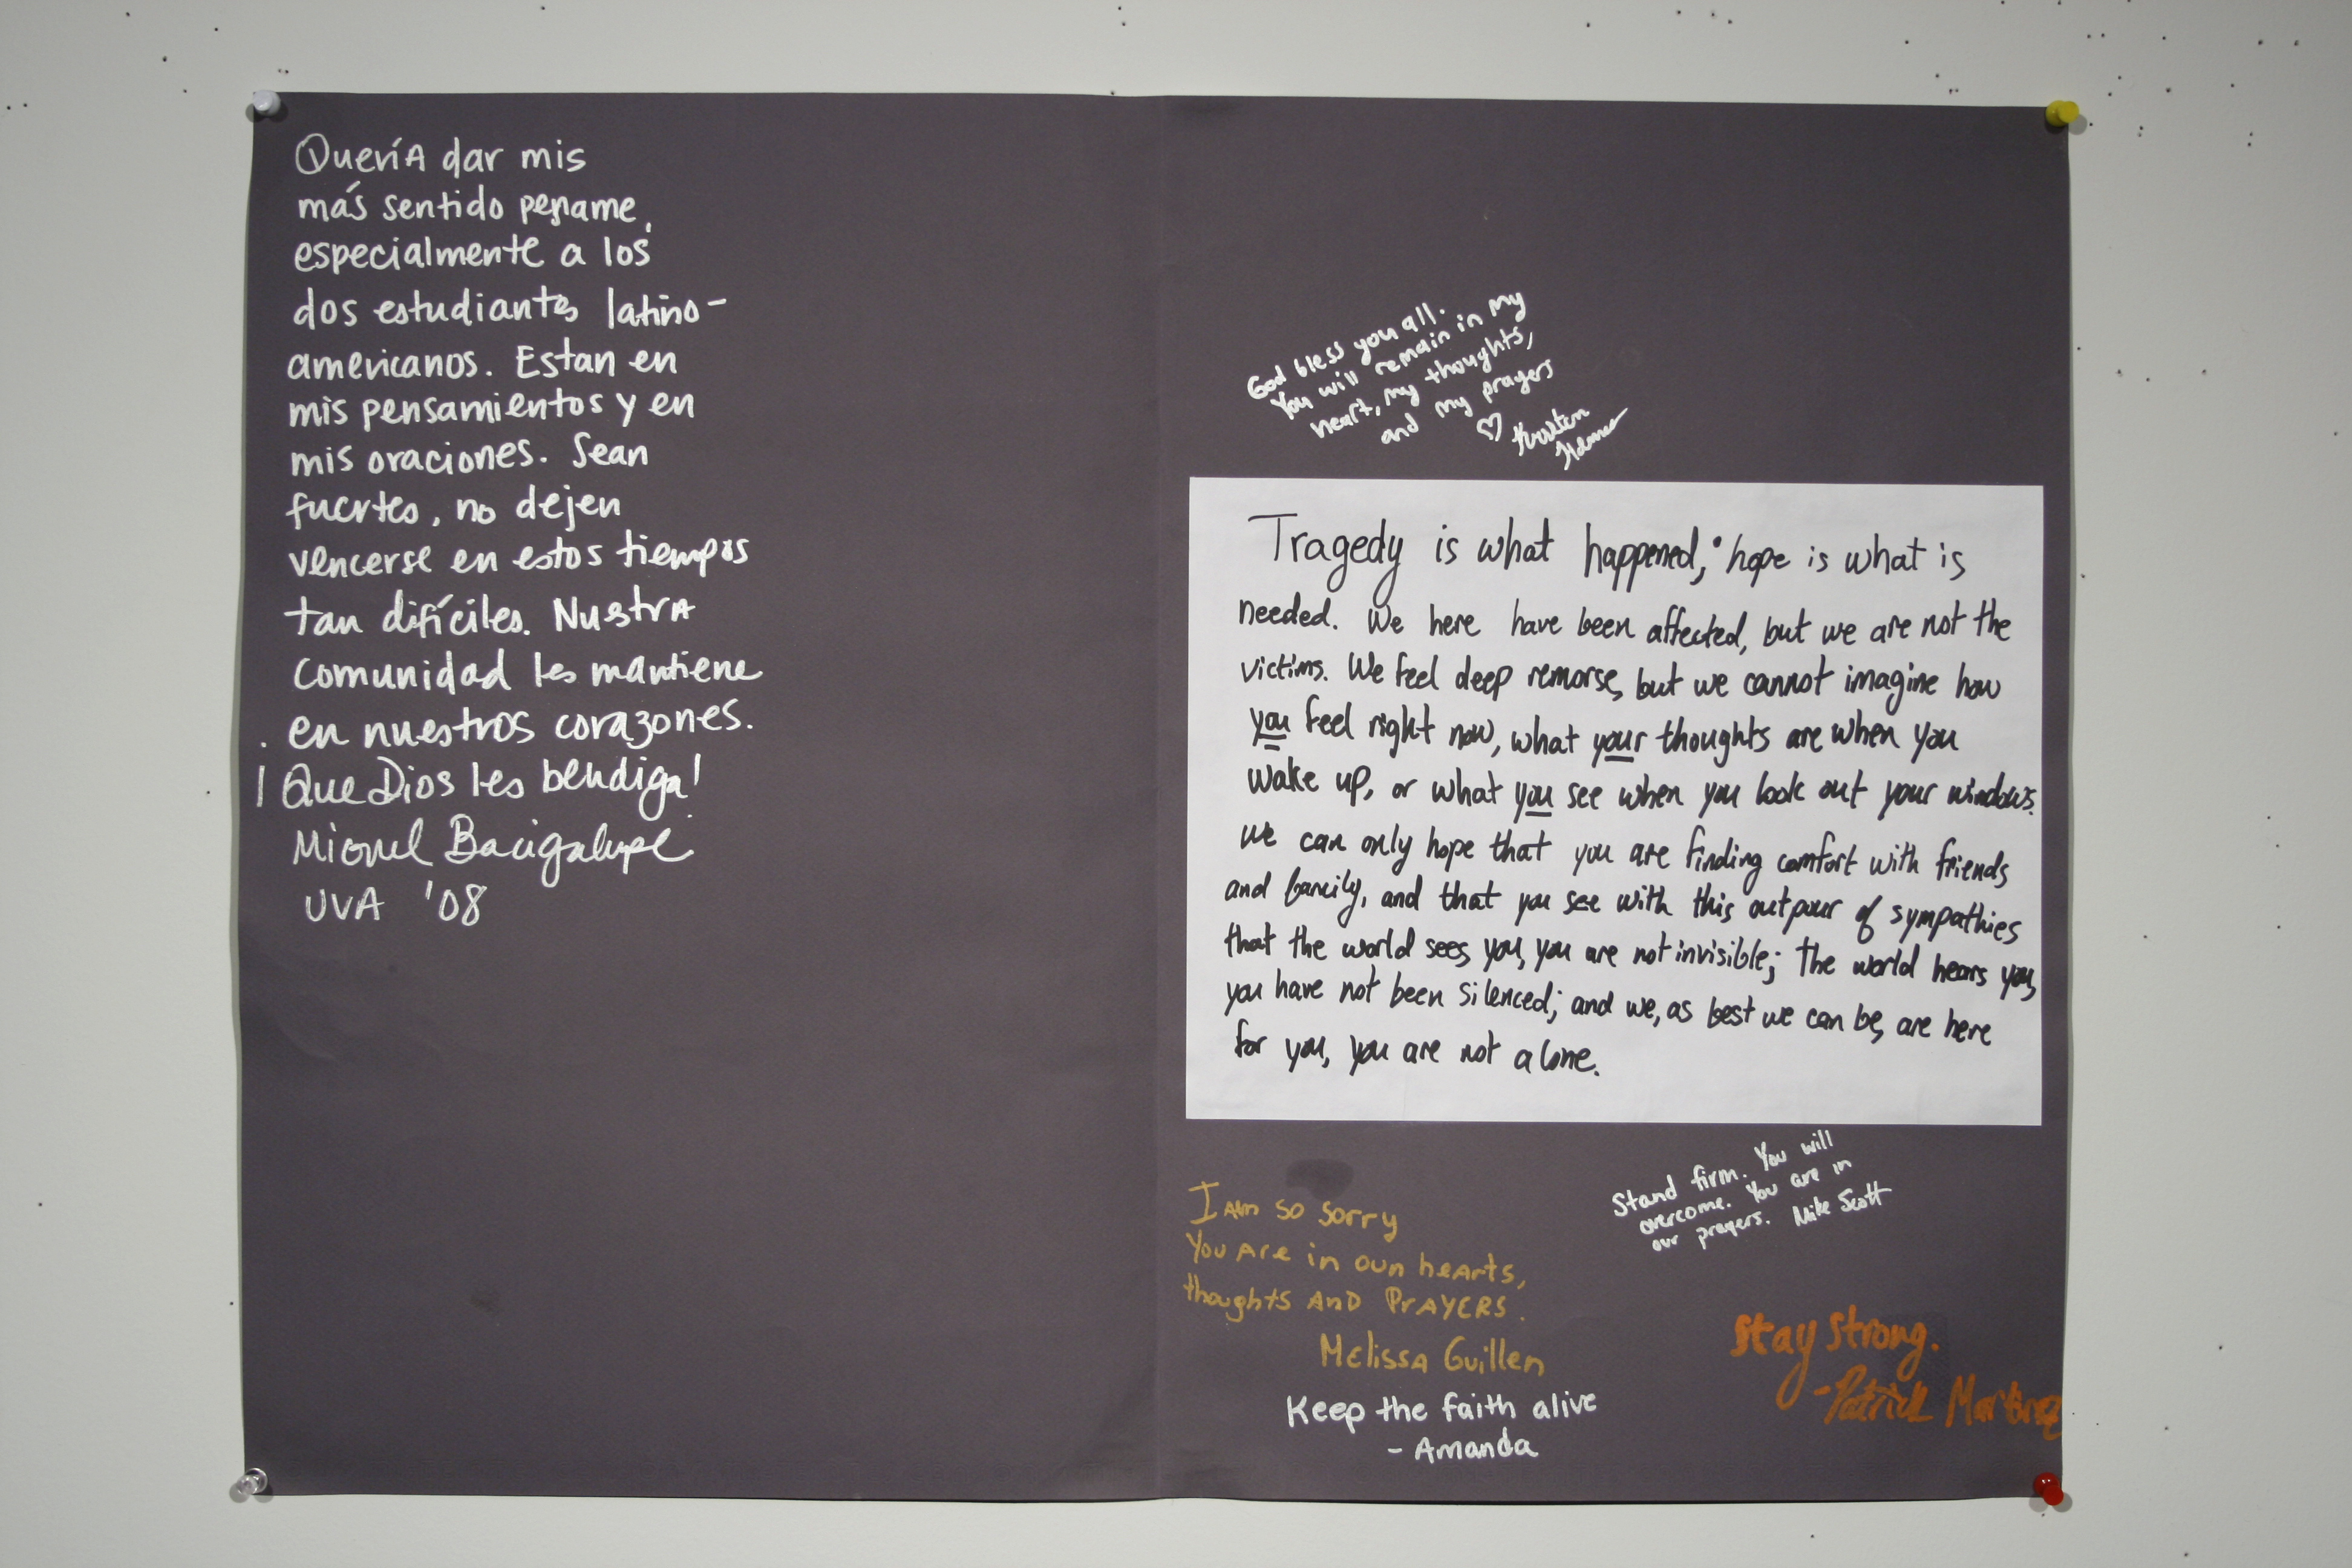 QueríA dar mis
más sentido pesame,
especialmente a los
dos estudiantes latino-
americanos. Estan en
mis pensamientos y en
mis oraciones. Sean
fuertes, no dejen
vencerse en estos tiempos
tan difíciles. NuestrA
comunidad les mantiene
en nuestros corazones.
¡Que Dios les bendiga!
Miguel Bacigalupe
UVA '08
God bless you all.
You will remain in my
heart, my thoughts,
and my prayers
♡
Tragedy is what happened, hope is what is
needed. We here have been affected, but we are not the
victims. We feel deep remorse, but we cannot imagine how
you feel right now, what your thoughts are when you
wake up, or what you see when you look out your windows.
We can only hope that you are finding comfort with friends
and family, and that you see with this outpour of sympathies
that the world sees you, you are not invisible; the world hears you,
you have not been silenced; and we, as best we can be, are here
for you, you are not alone.
Stand firm. You will
overcome. You are in
our prayers. Mike Scott
I Am so sorry
You Are in our heArts,
thoughts AND PrAYERS.
MElissA Guillen
Keep the faith alive
- Amanda
Stay strong.
-Patrick Martinez